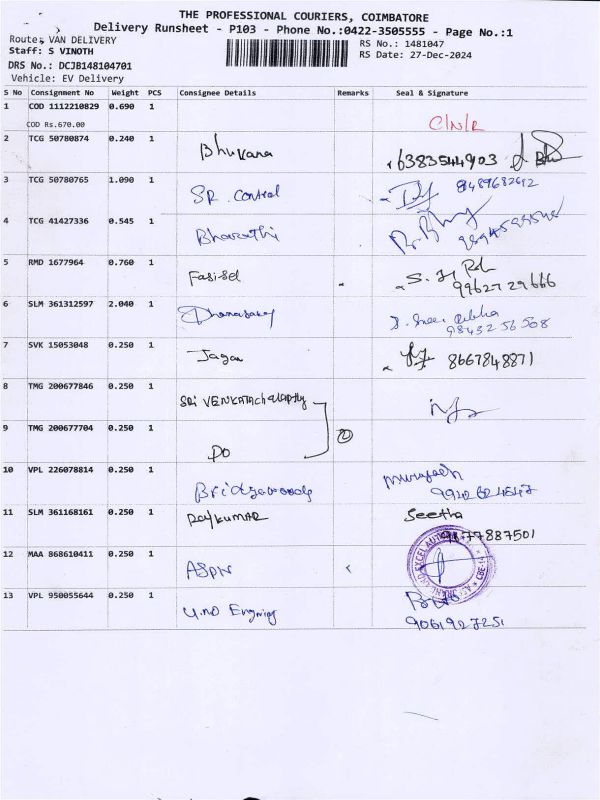 THE PROFESSIONAL COURIERS, COIMBATORE
Delivery Runsheet - P103 - Phone No.:0422-3505555 - Page No.:1
Route: VAN DELIVERY
Staff: S VINOTH
RS No.: 1481047
RS Date: 27-Dec-2024
DRS No.: DCJB148104701
Vehicle: EV Delivery
S No Consignment No Weight PCS Consignee Details Remarks Seal & Signature
1 COD 1112210829 0.690 1
COD Rs.670.00 C/N/R
2 TCG 50780874 0.240 1 Bhuvana 6383544903
3 TCG 50780765 1.090 1 SR. Control 8489682692
4 TCG 41427336 0.545 1 Bharathi
5 RMD 1677964 0.760 1 Fasisel 9962729666
6 SLM 361312597 2.040 1 Dhanasekar 9843256508
7 SVK 15053048 0.250 1 Jagan 8667848871
8 TMG 200677846 0.250 1 SRI VENKATAchalapthy
9 TMG 200677704 0.250 1 DO 2
10 VPL 226078814 0.250 1 Bridgewoods murugesh
11 SLM 361168161 0.250 1 RAJKUMAR Seetha
77887501
12 MAA 868610411 0.250 1 ASPN
13 VPL 950055644 0.250 1 U.NO Enginieg
9061927251